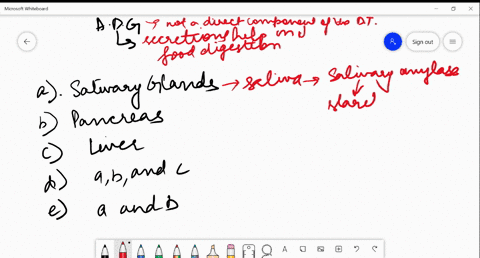 Microsoft Whiteboard
Sign out
A.D.G → not a direct component of the DT.
↳ secretions help in
food digestion
a). Salivary Glands → saliva → Salivary amylase
starc
b) Pancreas
c) Liver
d) a, b, and c
e) a and b